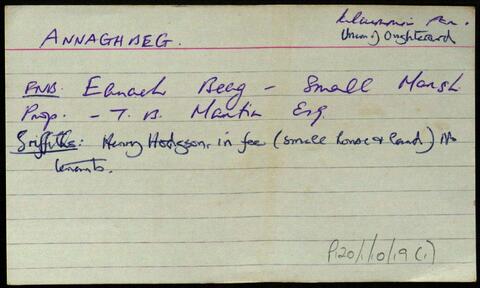 Killannin Par.
Union of Oughterard
ANNAGHBEG.
FNB. Eanach Beag - Small Marsh
Prop. - T. B. Martin Esq.
Griffiths: Henry Hodgson, in fee (small house & land) No
tenants.
P120/1/10/19 (1)